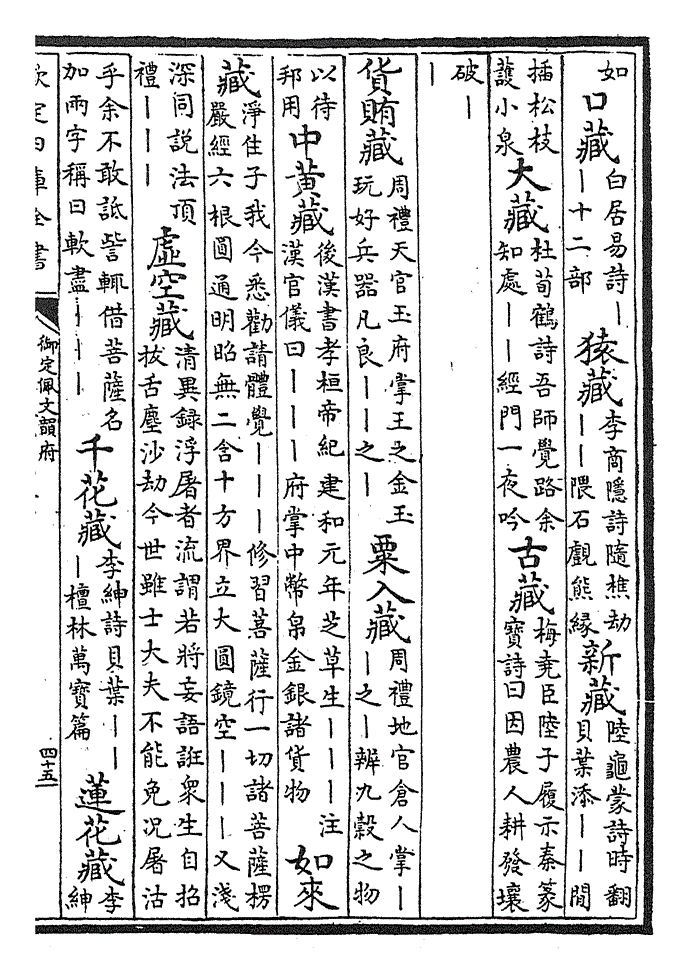 如
口藏
白居易詩｜
｜十二部
猿藏
李商隱詩隨樵劫
｜｜隈石戲熊縁
新藏
陸龜蒙詩時翻
貝葉添｜｜閒
插松枝
護小泉
大藏
杜荀鶴詩吾師覺路余
知處｜｜經門一夜吟
古藏
梅堯臣陸子履示秦篆
寶詩曰因農人耕發壤
破｜
｜
貨賄藏
周禮天官玉府掌王之金玉
玩好兵器凡良｜｜之｜
粟入藏
周禮地官倉人掌｜
｜之｜辨九穀之物
以待
邦用
中黄藏
後漢書孝桓帝紀建和元年芝草生｜｜｜注
漢官儀曰｜｜｜府掌中幣帛金銀諸貨物
如來
藏
淨住子我今悉勸請體覺｜｜｜修習菩薩行一切諸菩薩楞
嚴經六根圓通明昭無二含十方界立大圓鏡空｜｜｜又淺
深同說法頂
禮｜｜｜
虛空藏
清異録浮屠者流謂若將妄語誑衆生自招
拔舌塵沙劫今世雖士大夫不能免况屠沽
乎余不敢詆訾輒借菩薩名
加兩字稱曰軟盡｜｜｜
千花藏
李紳詩貝葉｜｜
｜檀林萬寶篇
蓮花藏
李
紳
欽定四庫全書
御定佩文韻府
四十五